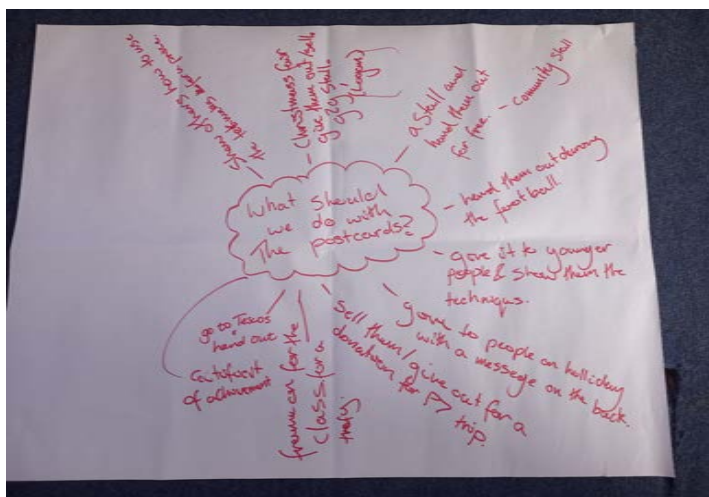 What should
we do with
The postcards?
Show others how to use
the before
- Christmass fair
give them out/sell
a stall and
hand them out
for free. - community stall
- hand them out during
the football.
- give it to younger
people & show them the
technique.
give to people on
with a message on the back.
Sell them/ give out for a
donation for P7 trip.
frame on for the
class for a
go to Tescos
+ hand out
of achievement